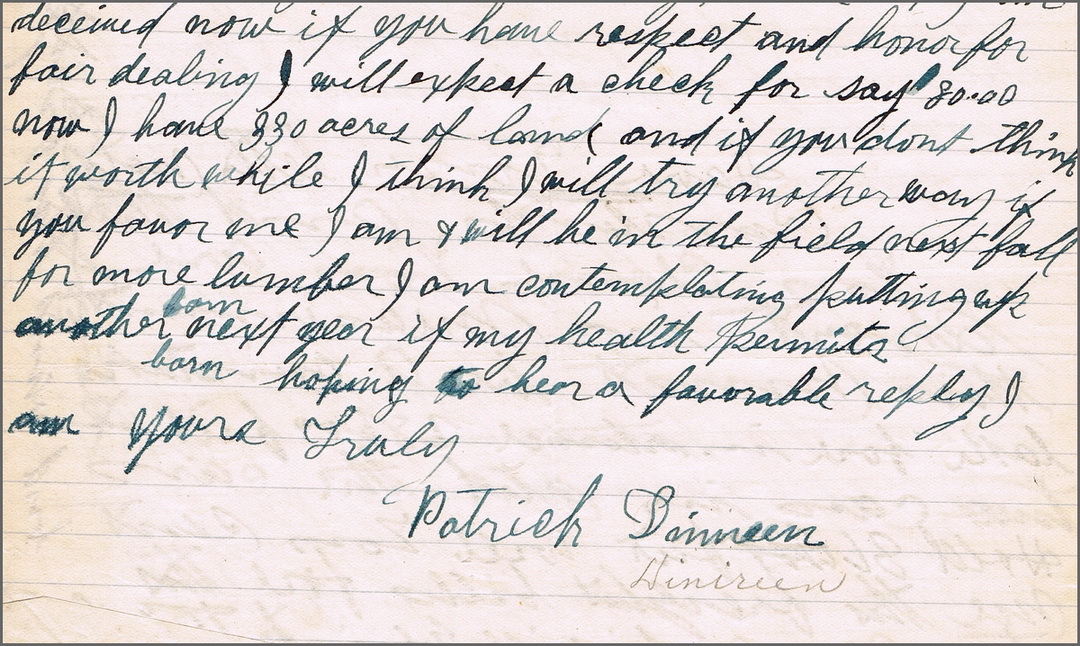 deceived now if you have respect and honor for
fair dealing I will expect a check for say 30.00
now I have 330 acres of land and if you dont think
it worth while I think I will try another way if
you favor me I am & will be in the field next fall
for more lumber I am contemplating putting up
another barn next year if my health permits
barn hoping to hear a favorable reply I
am Yours Truly
Patrick Dinneen
Dinireen